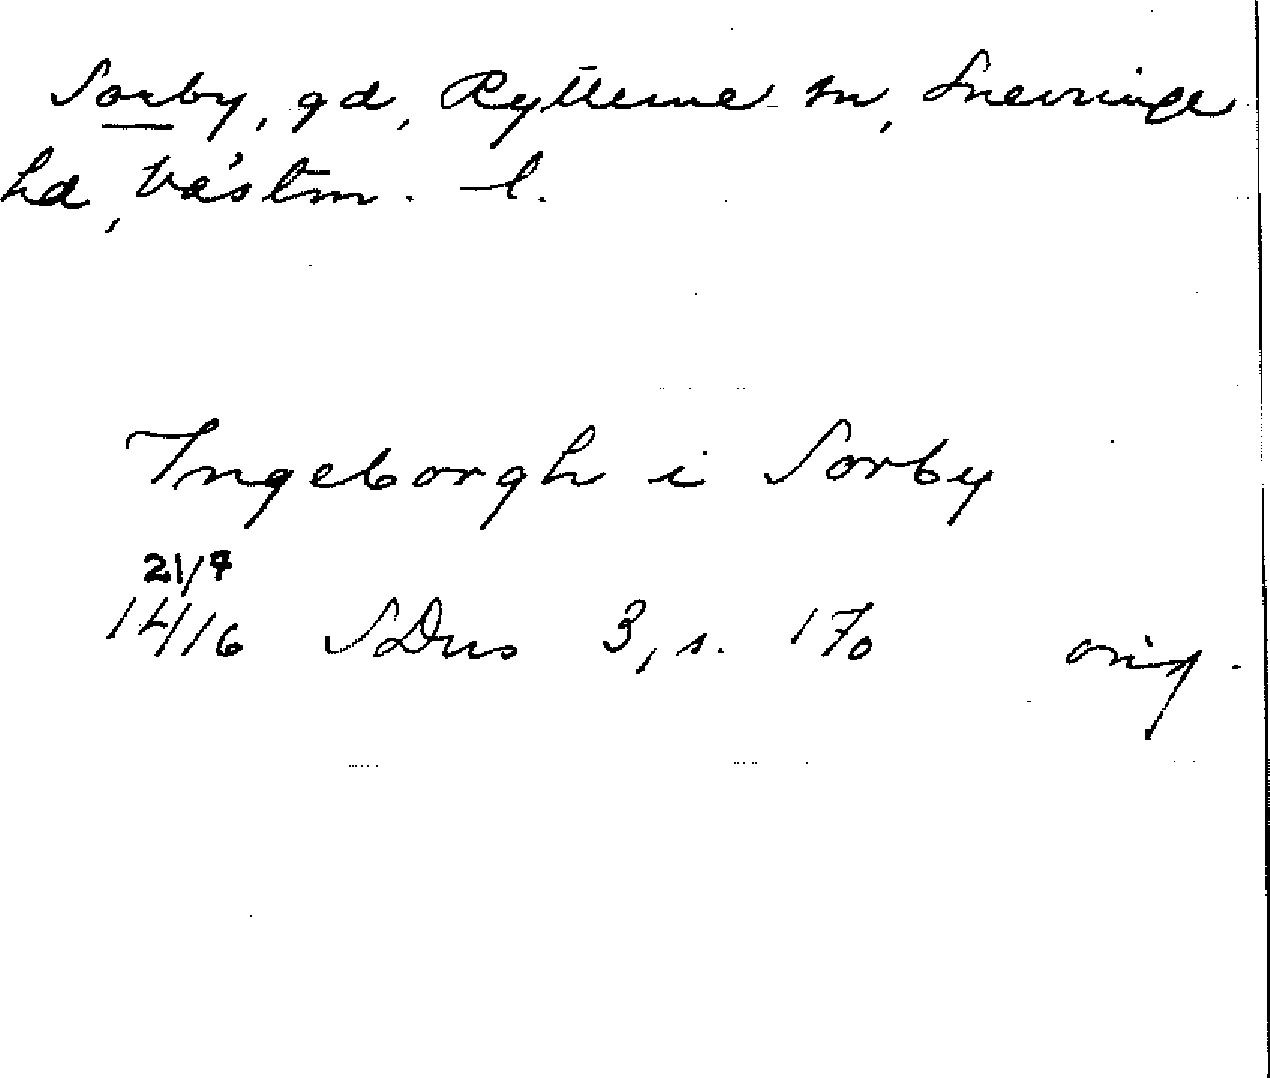 Sorby, gd, Rytterne sn, Snevringe
hd, Västm. l.
Ingeborgh i Sorby
21/7
1416 SDns 3, s. 170 orig.